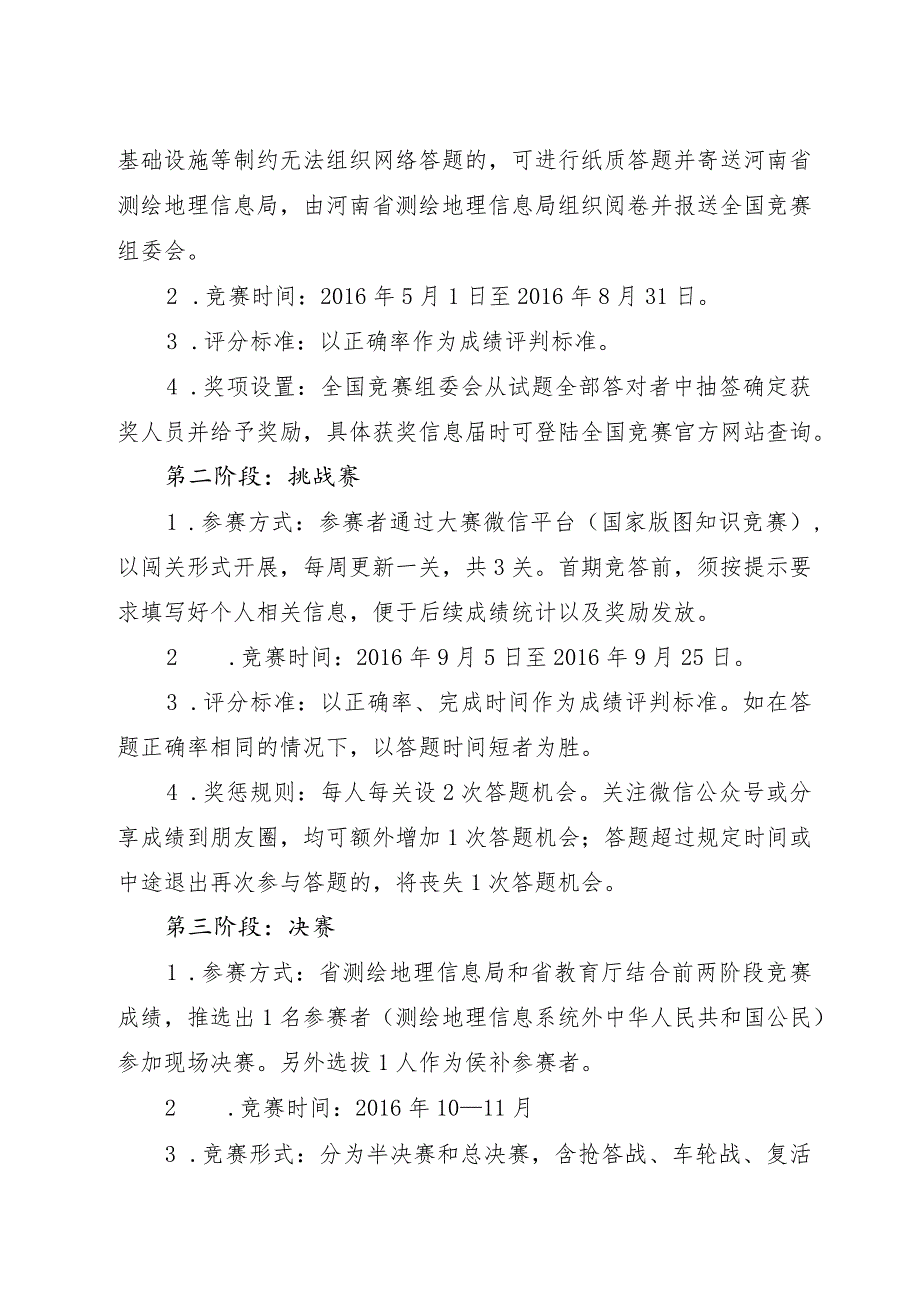 基础设施等制约无法组织网络答题的，可进行纸质答题并寄送河南省
测绘地理信息局，由河南省测绘地理信息局组织阅卷并报送全国竞赛
组委会。
2 .竞赛时间：2016 年 5 月 1 日至 2016 年 8 月 31 日。
3 .评分标准：以正确率作为成绩评判标准。
4 .奖项设置：全国竞赛组委会从试题全部答对者中抽签确定获
奖人员并给予奖励，具体获奖信息届时可登陆全国竞赛官方网站查询。
第二阶段：挑战赛
1 .参赛方式：参赛者通过大赛微信平台（国家版图知识竞赛），
以闯关形式开展，每周更新一关，共 3 关。首期竞答前，须按提示要
求填写好个人相关信息，便于后续成绩统计以及奖励发放。
2 .竞赛时间：2016 年 9 月 5 日至 2016 年 9 月 25 日。
3 .评分标准：以正确率、完成时间作为成绩评判标准。如在答
题正确率相同的情况下，以答题时间短者为胜。
4 .奖惩规则：每人每关设 2 次答题机会。关注微信公众号或分
享成绩到朋友圈，均可额外增加 1 次答题机会；答题超过规定时间或
中途退出再次参与答题的，将丧失 1 次答题机会。
第三阶段：决赛
1 .参赛方式：省测绘地理信息局和省教育厅结合前两阶段竞赛
成绩，推选出 1 名参赛者（测绘地理信息系统外中华人民共和国公民）
参加现场决赛。另外选拔 1 人作为侯补参赛者。
2 .竞赛时间：2016 年 10—11 月
3 .竞赛形式：分为半决赛和总决赛，含抢答战、车轮战、复活